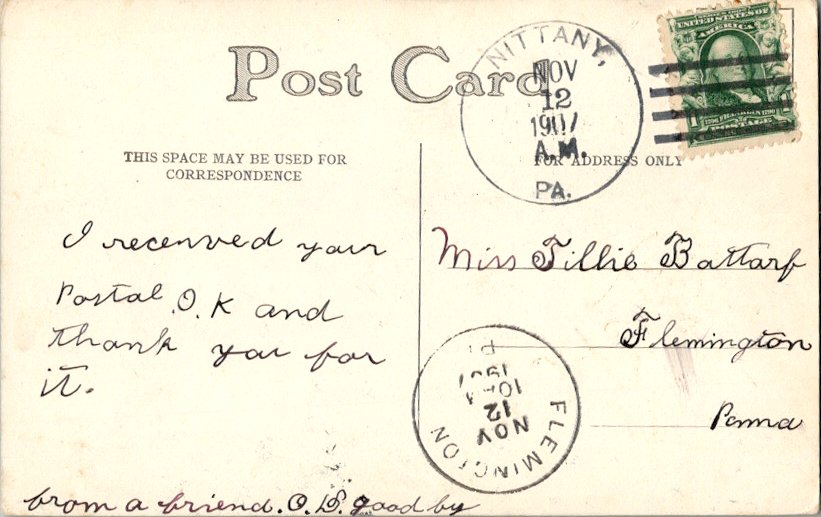 Post Card
NITTANY,
NOV
12
1907
A.M.
PA.
UNITED STATES OF
AMERICA
1706 FRANKLIN 1790
POSTAGE
THIS SPACE MAY BE USED FOR
CORRESPONDENCE
FOR ADDRESS ONLY
I received your
Postal O.K and
thank you for
it.
from a friend. O.S. good by
Miss Tillie Battarf
Flemington
Penna
FLEMINGTON
NOV
12
10 A
1907